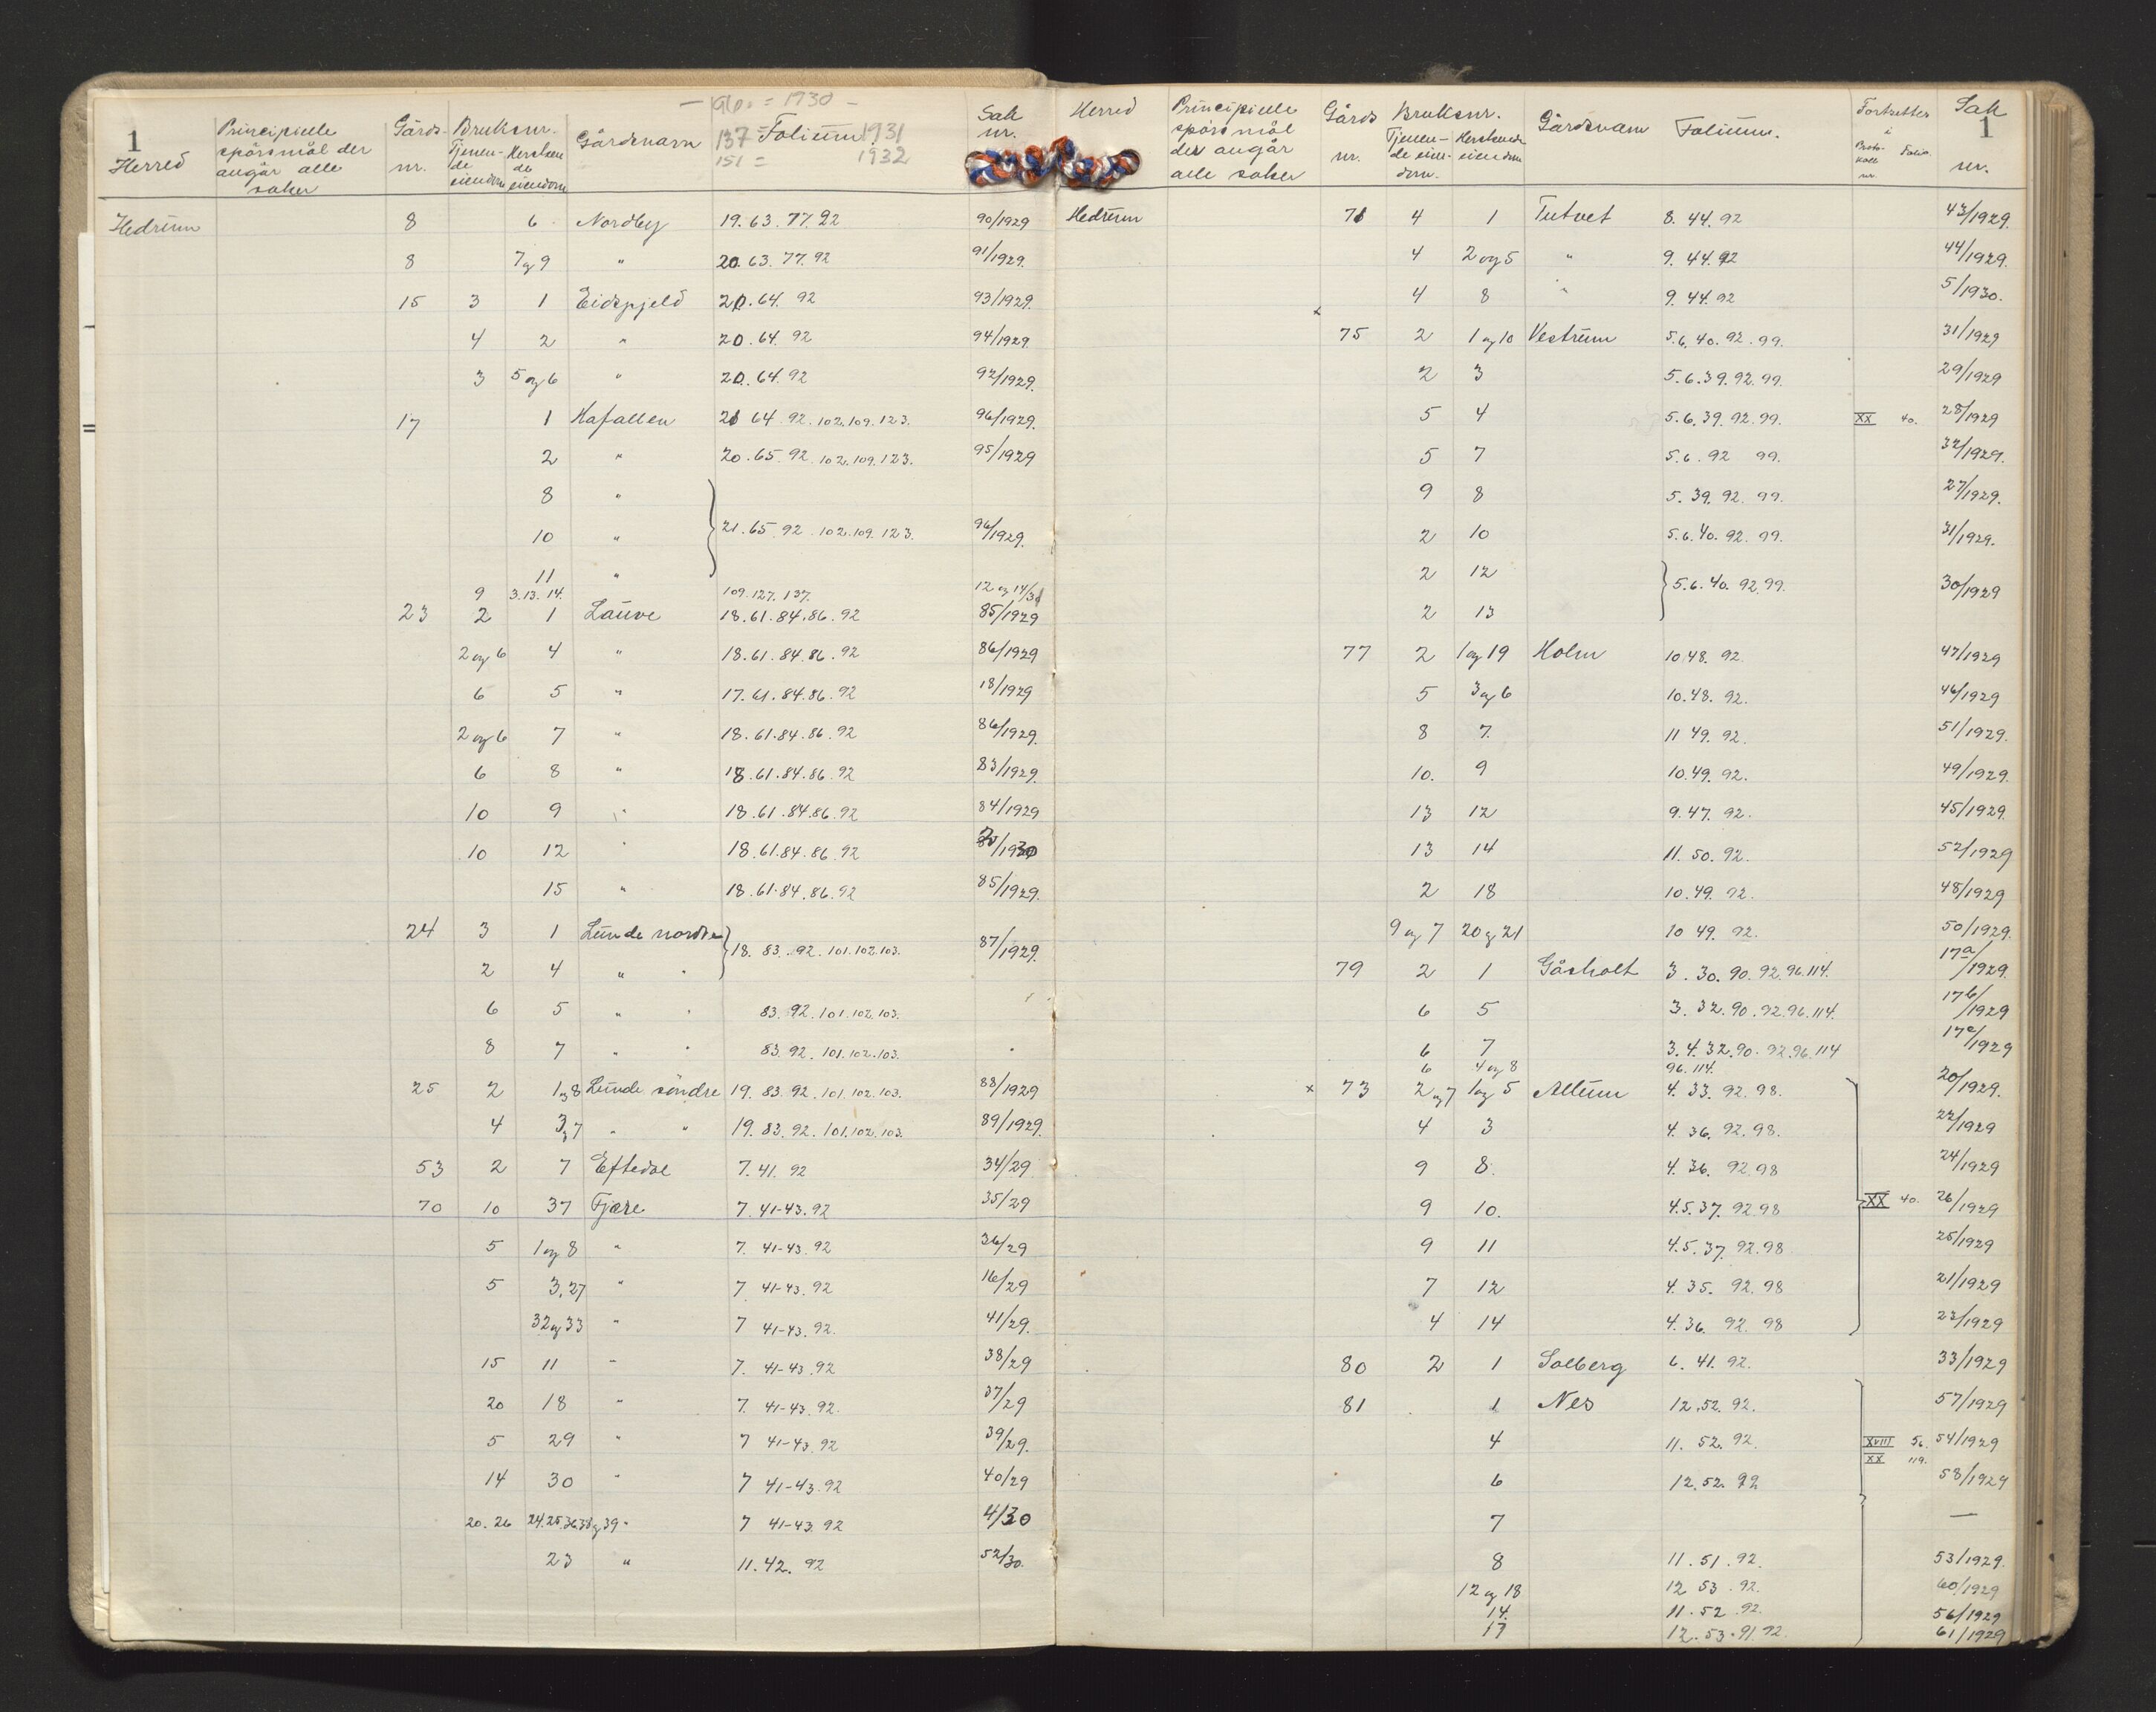 1
Herred
Principielle spörsmål der angår alle saker
Gårds-nr.
Bruksnr.
Tjenende eiendom
Herskende eiendom
Gårdsnavn
= 1930 -
137 = Folium 1931
151 = 1932
Sak nr.
Hedrum 8 6 Nordby 19.63.77.92 90/1929
8 7 og 9 " 20.63.77.92 91/1929.
15 3 1 Eidsfjeld 20.64.92 93/1929.
4 2 " 20.64.92 94/1929.
3 5 og 6 " 20.64.92 92/1929.
17 1 Hafallen 21 64 92.102.109.123. 96/1929.
2 " 20.65.92 102.109.123. 95/1929
8 "
10 " } 21.65.92.102.109.123. 96/1929.
11 "
9 3.13.14. 109.127.137. 12 og 14/31
23 2 1 Lauve 18.61.84.86.92 85/1929
2 og 6 4 " 18.61.84.86.92 86/1929
6 5 " 17.61.84.86.92 18/1929
2 og 6 7 " 18.61.84.86.92 86/1929.
6 8 " 18.61.84.86.92 83/1929.
10 9 " 18.61.84.86.92 84/1929
10 12 " 18.61.84.86.92 /1930
15 " 18.61.84.86.92 85/1929.
24 3 1 Lunde nordre } 18.83.92.101.102.103. 87/1929.
2 4 " "
6 5 " " 83.92.101.102.103. "
8 7 " " 83.92.101.102.103. "
25 2 1 og 8 Lunde söndre 19.83.92.101.102.103. 88/1929
4 3 og 7 " " 19.83.92.101.102.103. 89/1929.
53 2 7 Eftedal 7.41.92 34/29
70 10 37 Fjære 7.41-43.92 35/29
5 1 og 8 " 7.41-43.92 36/29
5 3,27 " 7 41-43.92 16/29
32 og 33 " 7 41-43.92. 41/29.
15 11 " 7. 41-43.92 38/29
20 18 " 7. 41-43.92. 37/29
5 29 " 7 41-43.92 39/29.
14 30 " 7 41-43.92 40/29
20.26 24.25.36.38 og 39 " 7 41-43.92 4/30
23 " 11.42.92 52/30.
Herred
Principielle spörsmål der angår alle saker
Gårds nr.
Bruksnr.
Tjenende eiendom.
Herskende eiendom
Gårdsnavn
Folium.
Fortsetter i
Protokoll nr.
Folio.
Sak nr.
1
Hedrum 71 4 1 Tutvet 8.44.92 43/1929.
4 2 og 5 " 9.44.92 44/1929.
4 8 " 9.44.92 5/1930.
x
75 2 1 og 10 Vestrum 5.6.40.92.99. 31/1929
2 3 5.6.39.92.99. 29/1929
5 4 5.6.39.92.99. XX 40. 28/1929
5 7 5.6.92 99. 32/1929.
9 8 5.39.92.99. 27/1929.
2 10 5.6.40.92.99. 31/1929.
2 12 } 5.6.40.92.99. 30/1929
2 13
77 2 1 og 19 Holm 10.48.92. 47/1929
5 3 og 6 10.48.92. 46/1929
8 7. 11 49.92. 51/1929.
10. 9 10.49.92. 49/1929.
13 12 9.47.92. 45/1929.
13 14 11.50.92. 52/1929
2 18 10.49.92. 48/1929
9 og 7 20 og 21 10 49.92. 50/1929.
79 2 1 Gåsholt 3.30.90.92.96.114. 17a/1929.
6 5 3.32.90.92.96.114. 17b/1929
6 7 3.4.32.90.92.96.114 17c/1929
6 4 og 8 96.114.
x 73 2 og 7 1 og 5 Allum 4.33.92.98. 20/1929.
4 3 4.36.92.98. 22/1929
9 8. 4.36.92.98 24/1929
9 10. 4.5.37.92.98 XX 40. 26/1929
9 11 4.5.37.92.98 25/1929
7 12 4.35.92.98 21/1929
4 14 4.36.92.98 23/1929
80 2 1 Solberg 6.41.92. 33/1929
81 1 Nes 12.52.92. 57/1929
4 11.52.92. XVIII 56. 54/1929
XX 119.
6 12.52.92 58/1929
7 —
8 11.51.92. 53/1929.
12 og 18 12 53.92. 60/1929
14. 11.52.92. 56/1929
17 12.53.91.92. 61/1929